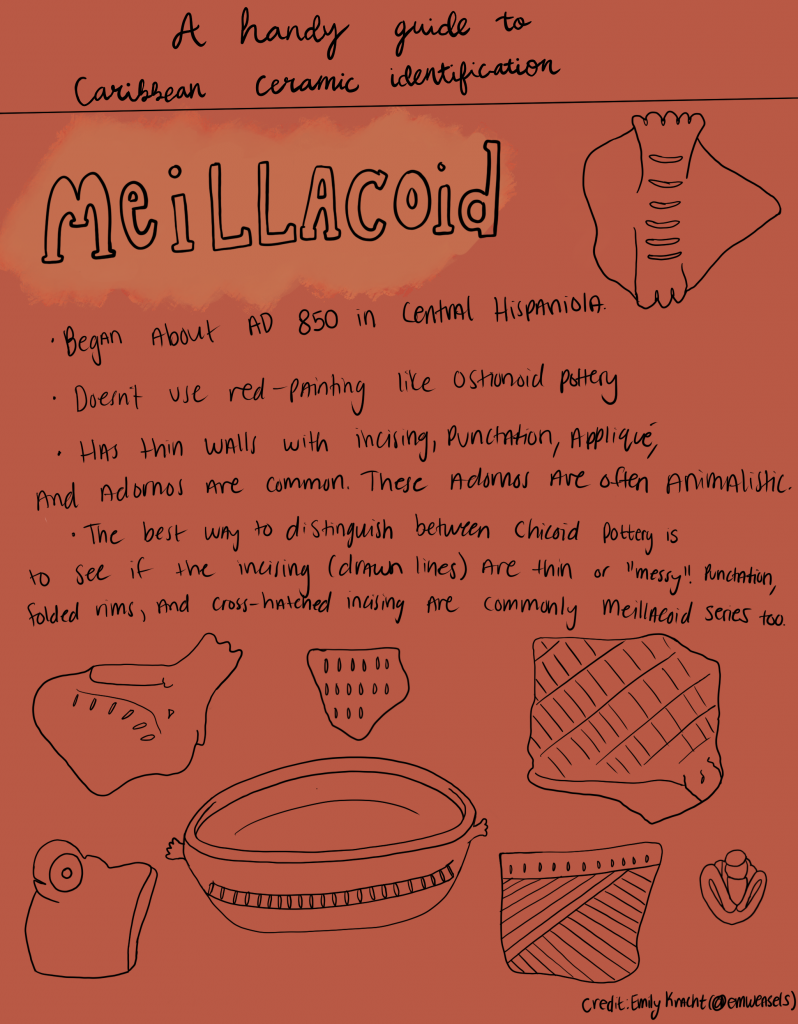 A handy guide to
Caribbean ceramic identification
Meillacoid
· Began About AD 850 in Central Hispaniola.
· Doesn't use red-painting like Ostionoid pottery
· Has thin walls with incising, Punctation, Appliqué,
And Adornos Are common. These Adornos Are often Animalistic.
· The best way to distinguish between Chicoid pottery is
to see if the incising (drawn lines) Are thin or "messy". Punctation,
folded rims, And cross-hatched incising Are commonly Meillacoid series too.
Credit: Emily Kracht (@emwensels)